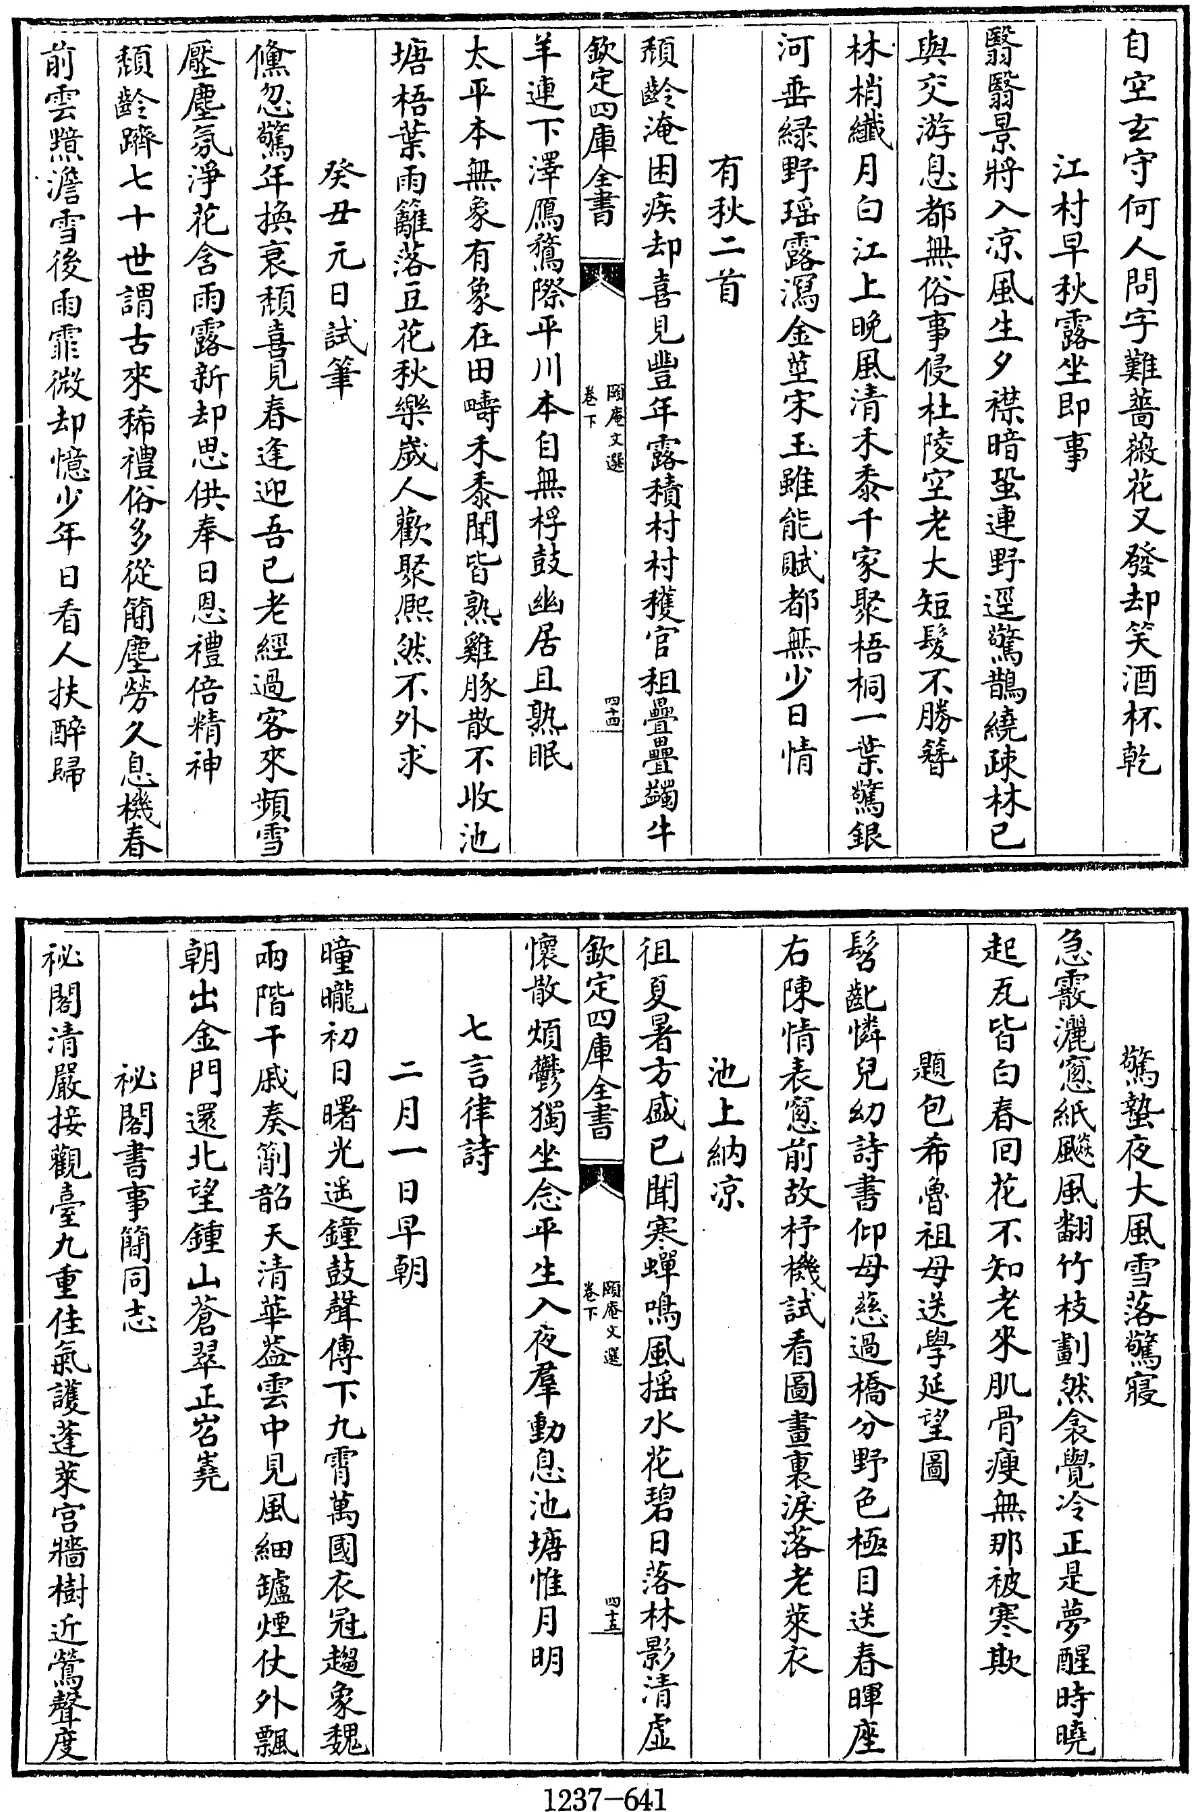 自空玄守何人問字難薔薇花又發却笑酒杯乾
江村早秋露坐即事
翳翳景將入凉風生夕襟暗蛩連野逕驚鵲繞疎林已
與交游息都無俗事侵杜陵空老大短髮不勝簪
林梢纖月白江上晚風清禾黍千家聚梧桐一葉驚銀
河垂緑野瑶露瀉金莖宋玉雖能賦都無少日情
有秋二首
頽齡淹困疾却喜見豐年露積村村穫官租疊疊蠲牛
欽定四庫全書
頤庵文選
卷下
四十四
羊連下澤鴈鶩際平川本自無桴鼓幽居且熟眠
太平本無象有象在田疇禾黍聞皆熟雞豚散不收池
塘梧葉雨籬落豆花秋樂歲人歡聚熈然不外求
癸丑元日試筆
儵忽驚年換衰頽喜見春逢迎吾已老經過客來頻雪
壓塵氛淨花含雨露新却思供奉日恩禮倍精神
頽齡躋七十世謂古來稀禮俗多從簡塵勞久息機春
前雲黯澹雪後雨霏微却憶少年日看人扶醉歸
驚蟄夜大風雪落驚寢
急霰灑窻紙飈風翻竹枝劃然衾覺冷正是夢醒時曉
起瓦皆白春回花不知老來肌骨瘦無那被寒欺
題包希魯祖母送學延望圖
髫齔憐兒幼詩書仰母慈過橋分野色極目送春暉座
右陳情表窻前故杼機試看圖畫裏淚落老萊衣
池上納凉
徂夏暑方盛已聞寒蟬鳴風揺水花碧日落林影清虛
欽定四庫全書
頤庵文選
卷下
四十五
懷散煩鬱獨坐念平生入夜羣動息池塘惟月明
七言律詩
二月一日早朝
曈曨初日曙光遥鐘鼓聲傳下九霄萬國衣冠趨象魏
兩階干戚奏簫韶天清華葢雲中見風細罏煙仗外飄
朝出金門還北望鍾山蒼翠正岧嶤
祕閣書事簡同志
祕閣清嚴接觀臺九重佳氣護蓬萊宫牆樹近鶯聲度
1237-641